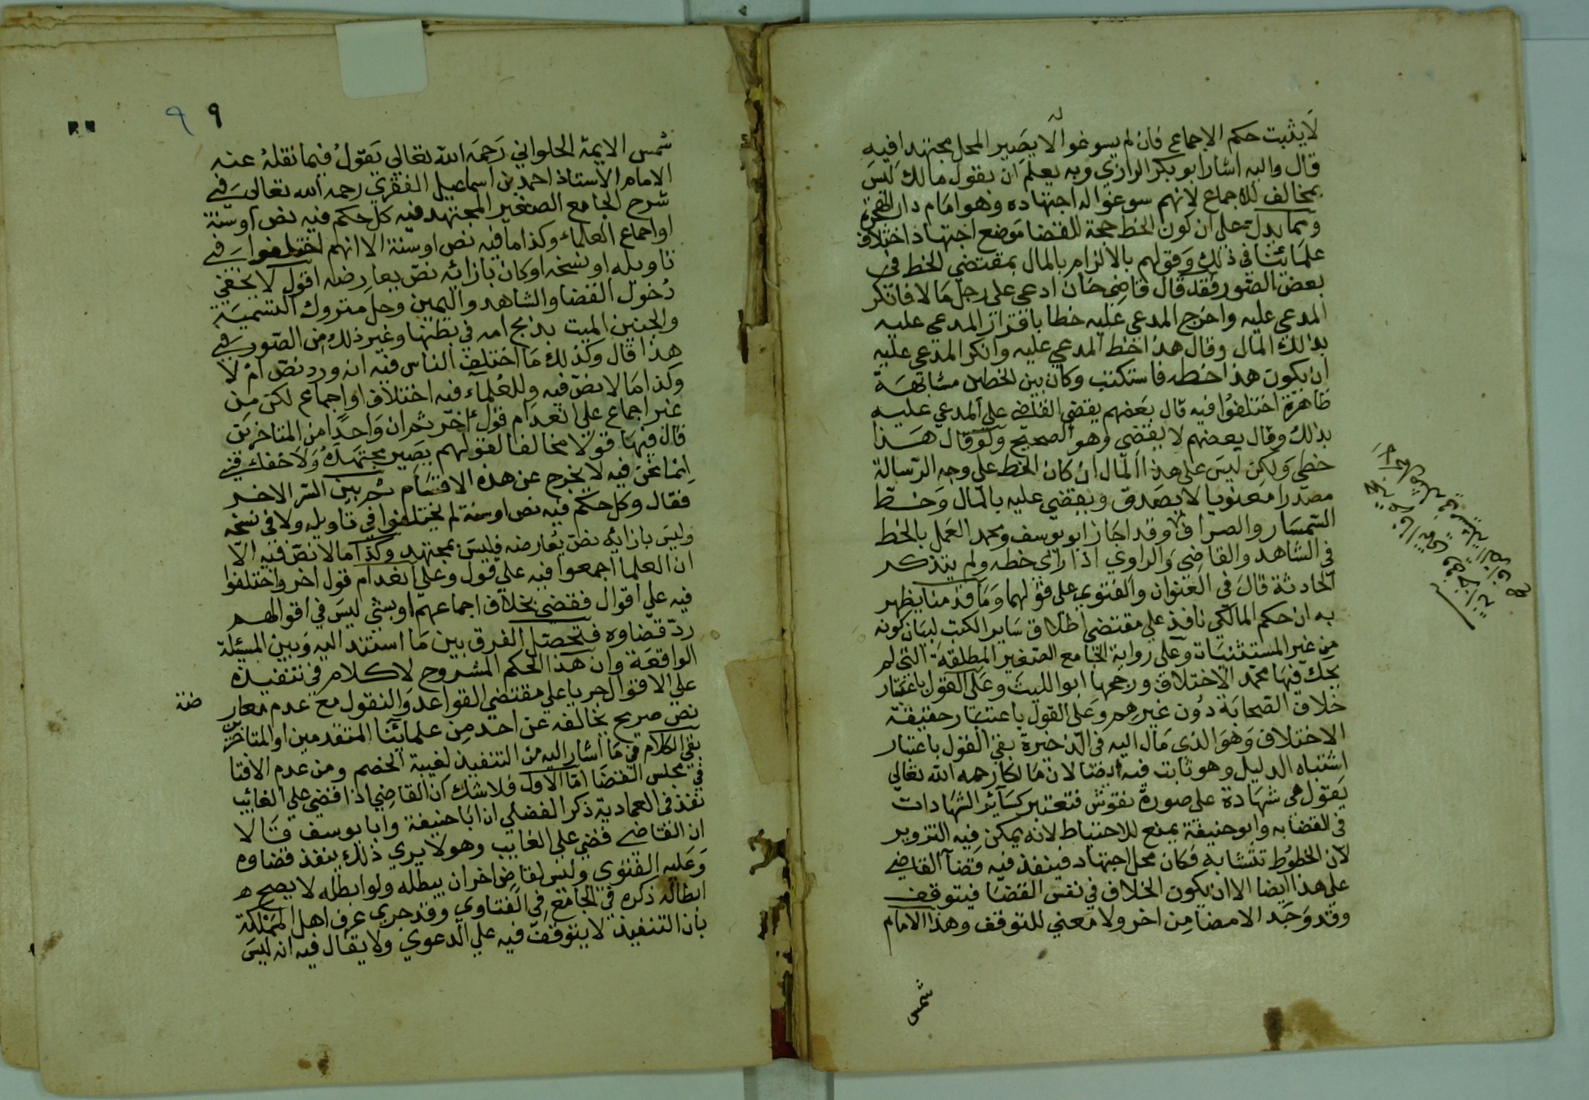 لا يثبت حكم الاجماع فان لم يسوغوا له لا يصير المحل مجتهدا فيه
قال واليه اشار ابو بكر الرازي وبه يعلم ان بقول مالك ليس
بمخالف للاجماع لانهم سوغوا له اجتهاده وهو امام دار الهجرة
ومما يدل على ان كون الخط حجة للقضا موضع اجتهاد اختلاف
علمائنا في ذلك وقولهم بالالزام بالمال بمقتضي الخط في
بعض الصور فقد قال قاضي خان ادعى على رجل مالا فانكر
المدعى عليه واخرج المدعي عليه خطا باقرار المدعى عليه
بذلك المال وقال هذا خط المدعي عليه وانكر المدعى عليه
ان يكون هذا خطه فاستكتب وكان بين الخطين مشابهة
ظاهرة اختلفوا فيه قال بعضهم يقضي القاضي علي المدعى عليه
بذلك وقال بعضهم لا يقضي وهو الصحيح ولو قال هذا
خطي ولكن ليس على هذا المال ان كان الخط على وجه الرسالة
مصدرا معنونا لا يصدق ويقضي عليه بالمال وخط
السمسار والصراف وقد اجاز ابو يوسف ومحمد العمل بالخط
في الشاهد والقاضي والراوي اذا راى خطه ولم يتذكر
الحادثة قال في العنوان والفتوى على قولهما وما قدمنا يظهر
به ان حكم المالكي نافذ علي مقتضى اطلاق ساير الكتب لبيان كونه
من غير المستثنيات وعلى رواية الجامع الصغير المطلقة التي لم
يحك فيها محمد الاختلاف ورجحها ابو الليث وعلى القول باعتبار
خلاف الصحابة دون غيرهم وعلى القول باعتبار حقيقة
الاختلاف وهو الذي مال اليه في الذخيرة بقى القول باعتبار
اشتباه الدليل وهو ثابت فيه ايضا لان مالكا رحمه الله تعالي
يقول هي شهادة على صورة نقوش فتعتبر كسائر الشهادات
في القضا به وابو حنيفة يمنع للاحتياط لانه يمكن فيه التزوير
لان الخطوط تتشابه فكان محل اجتهاد فينفذ فيه قضآ القاضي
على هذا ايضا الا ان يكون الخلاف في نفس القضا فيتوقف
وقد وجد الامضا من اخر ولا معني للتوقف وهذا الامام
شمس
٩ ٩
شمس الايمة الحلواني رحمه الله تعالي يقول فيما نقله عنه
الامام الاستاذ احمد بن اسماعيل رحمه الله تعالى في
شرح الجامع الصغير المجتهد فيه كل حكم فيه نص او سنة
او اجماع العلماء وكذا ما فيه نص او سنة الا انهم اختلفوا في
تاويله او نسخه او كان بازائه نص يعارضه اقول لا يخفي
دخول القضا والشاهد واليمين وحل متروك التسمية
والجنين الميت بذبح امه في بطنها وغير ذلك من الصور في
هذا قال وكذلك ما اختلف الناس فيه انه ورد نص ام لا
وكذا ما لا نص فيه وللعلماء فيه اختلاف او اجماع لكن من
غير اجماع على انعدام قول اخر ثم ان واحدا من المتاخرين
قال فيها قولا مخالفا لقولهم يصير مجتهدا ولا خفاء في
انما نحن فيه لا يخرج عن هذه الاقسام ثم بين الاخر
فقال وكل حكم فيه نص او سنة لم يختلفوا في تاويله ولا في نسخه
وليس بازايه نص يعارضه فليس بمجتهد وكذا ما لا نص فيه الا
ان العلما اجمعوا فيه علي قول وعلي انعدام قول اخر واختلفوا
فيه على اقوال فقضي بخلاف اجماعهم او بشي ليس في اقوالهم
رد قضاوه فتحصل الفرق بين ما استند اليه وبين المسئلة
الواقعة وان هذا الحكم المشروح لا كلام في تنفيذه
علي الاقوال جريا علي مقتضى القواعد والنقول مع عدم معار
ضة
نص صريح يخالفه عن احد من علمائنا المتقدمين او المتاخرين
بقي الكلام في ما اشار اليه من التنفيذ لغيبة الخصم ومن عدم الافتا
في مجلس القضا اما الاول فلا شك ان القاضي اذا قضي علي الغائب
نفذ في العمادية ذكر الفضلي ان ابا حنيفة وابا يوسف قالا
ان القاضي قضي على الغايب وهو لا يري ذلك ينفذ قضاوه
وعليه الفتوي وليس لقاض اخر ان يبطله ولو ابطله لا يصح
ابطاله ذكره في الجامع في الفتاوي وقد جري عرف اهل المملكة
بان التنفيذ لا يتوقف فيه علي الدعوي ولا يقال فيه انه ليس